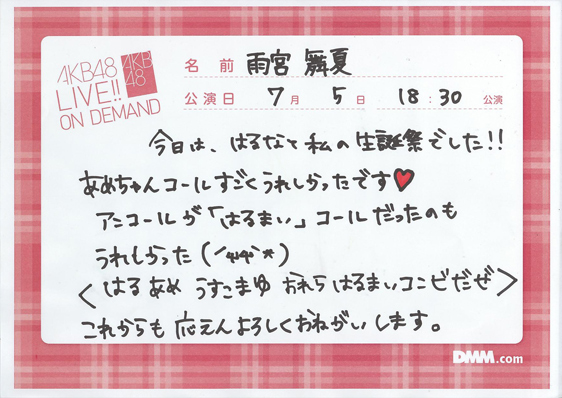 AKB48
LIVE!!
ON DEMAND
AKB
48
名前 雨宮 舞夏
公演日 7月 5日 18:30 公演
今日は、はるなと私の生誕祭でした!!
あめちゃんコールすごくうれしかったです♥
アンコールが「はるまい」コールだったのも
うれしかった(´ψψ`*)
<はるあめ うすこまゆ おれら はるまいコンビだぜ>
これからも応えんよろしくおねがいします。
DMM.com